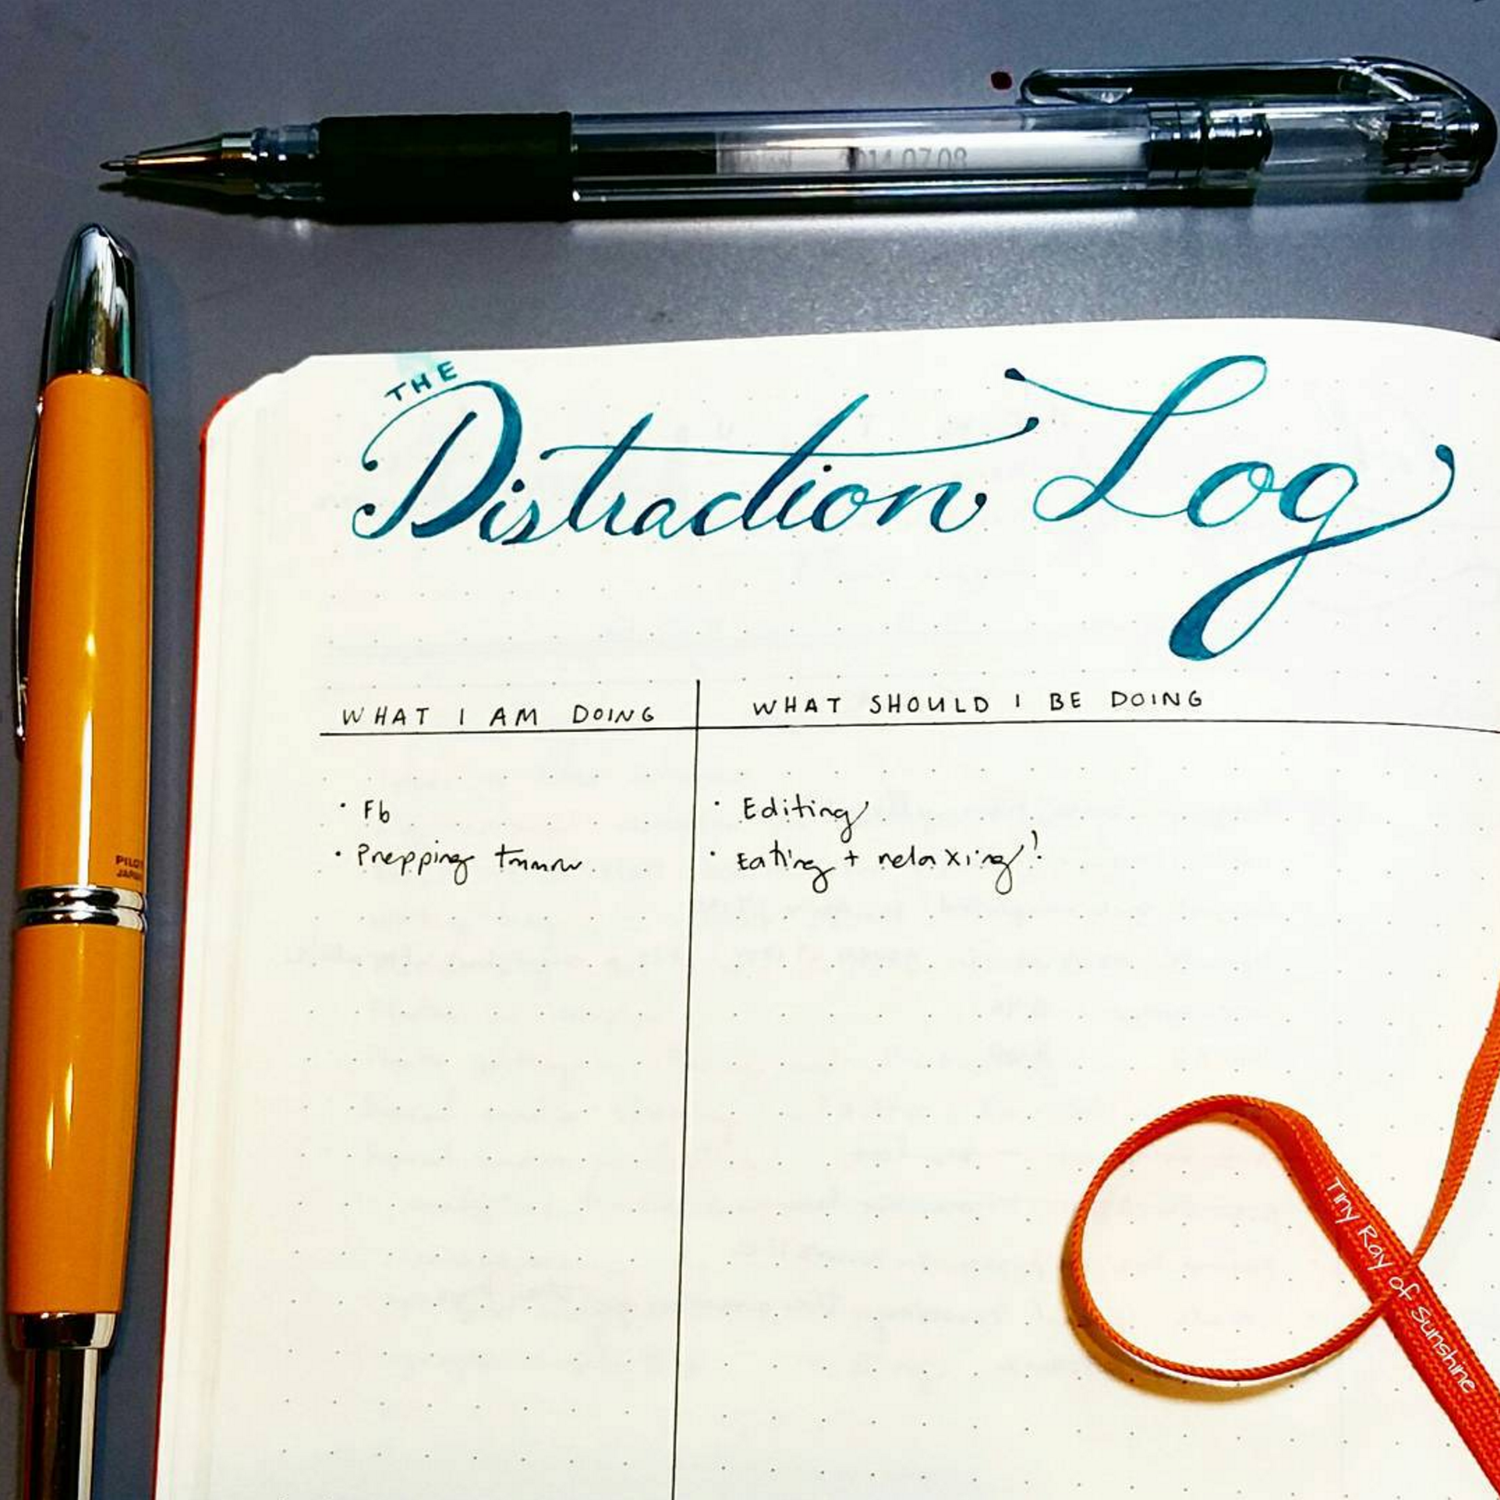 2014.07.08
THE
Distraction Log
WHAT I AM DOING
WHAT SHOULD I BE DOING
• Fb
• Editing
• Prepping tmmrw.
• Eating + relaxing!
PILOT
JAPAN
Tiny Ray of Sunshine